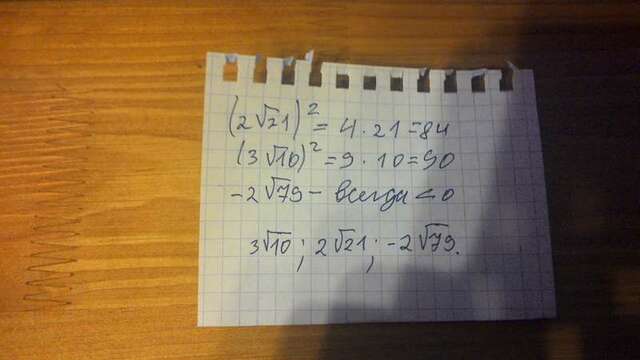 (2√21)² = 4 · 21 = 84
(3√10)² = 9 · 10 = 90
-2√79 - всегда < 0
3√10 ; 2√21 ; -2√79.